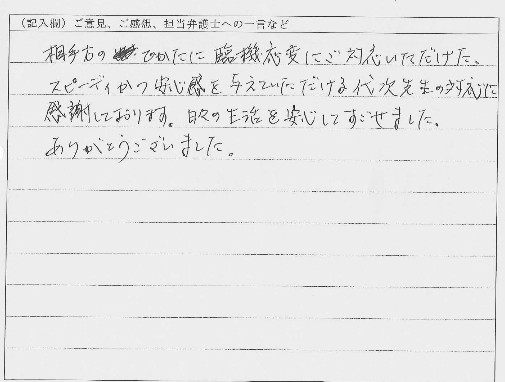 (記入欄) ご意見、ご感想、担当弁護士への一言など
相手方の でかたに臨機応変にご対応いただけた。
スピーディかつ安心感を与えていただける代次先生の対応に
感謝しております。日々の生活を安心してすごせました。
ありがとうございました。